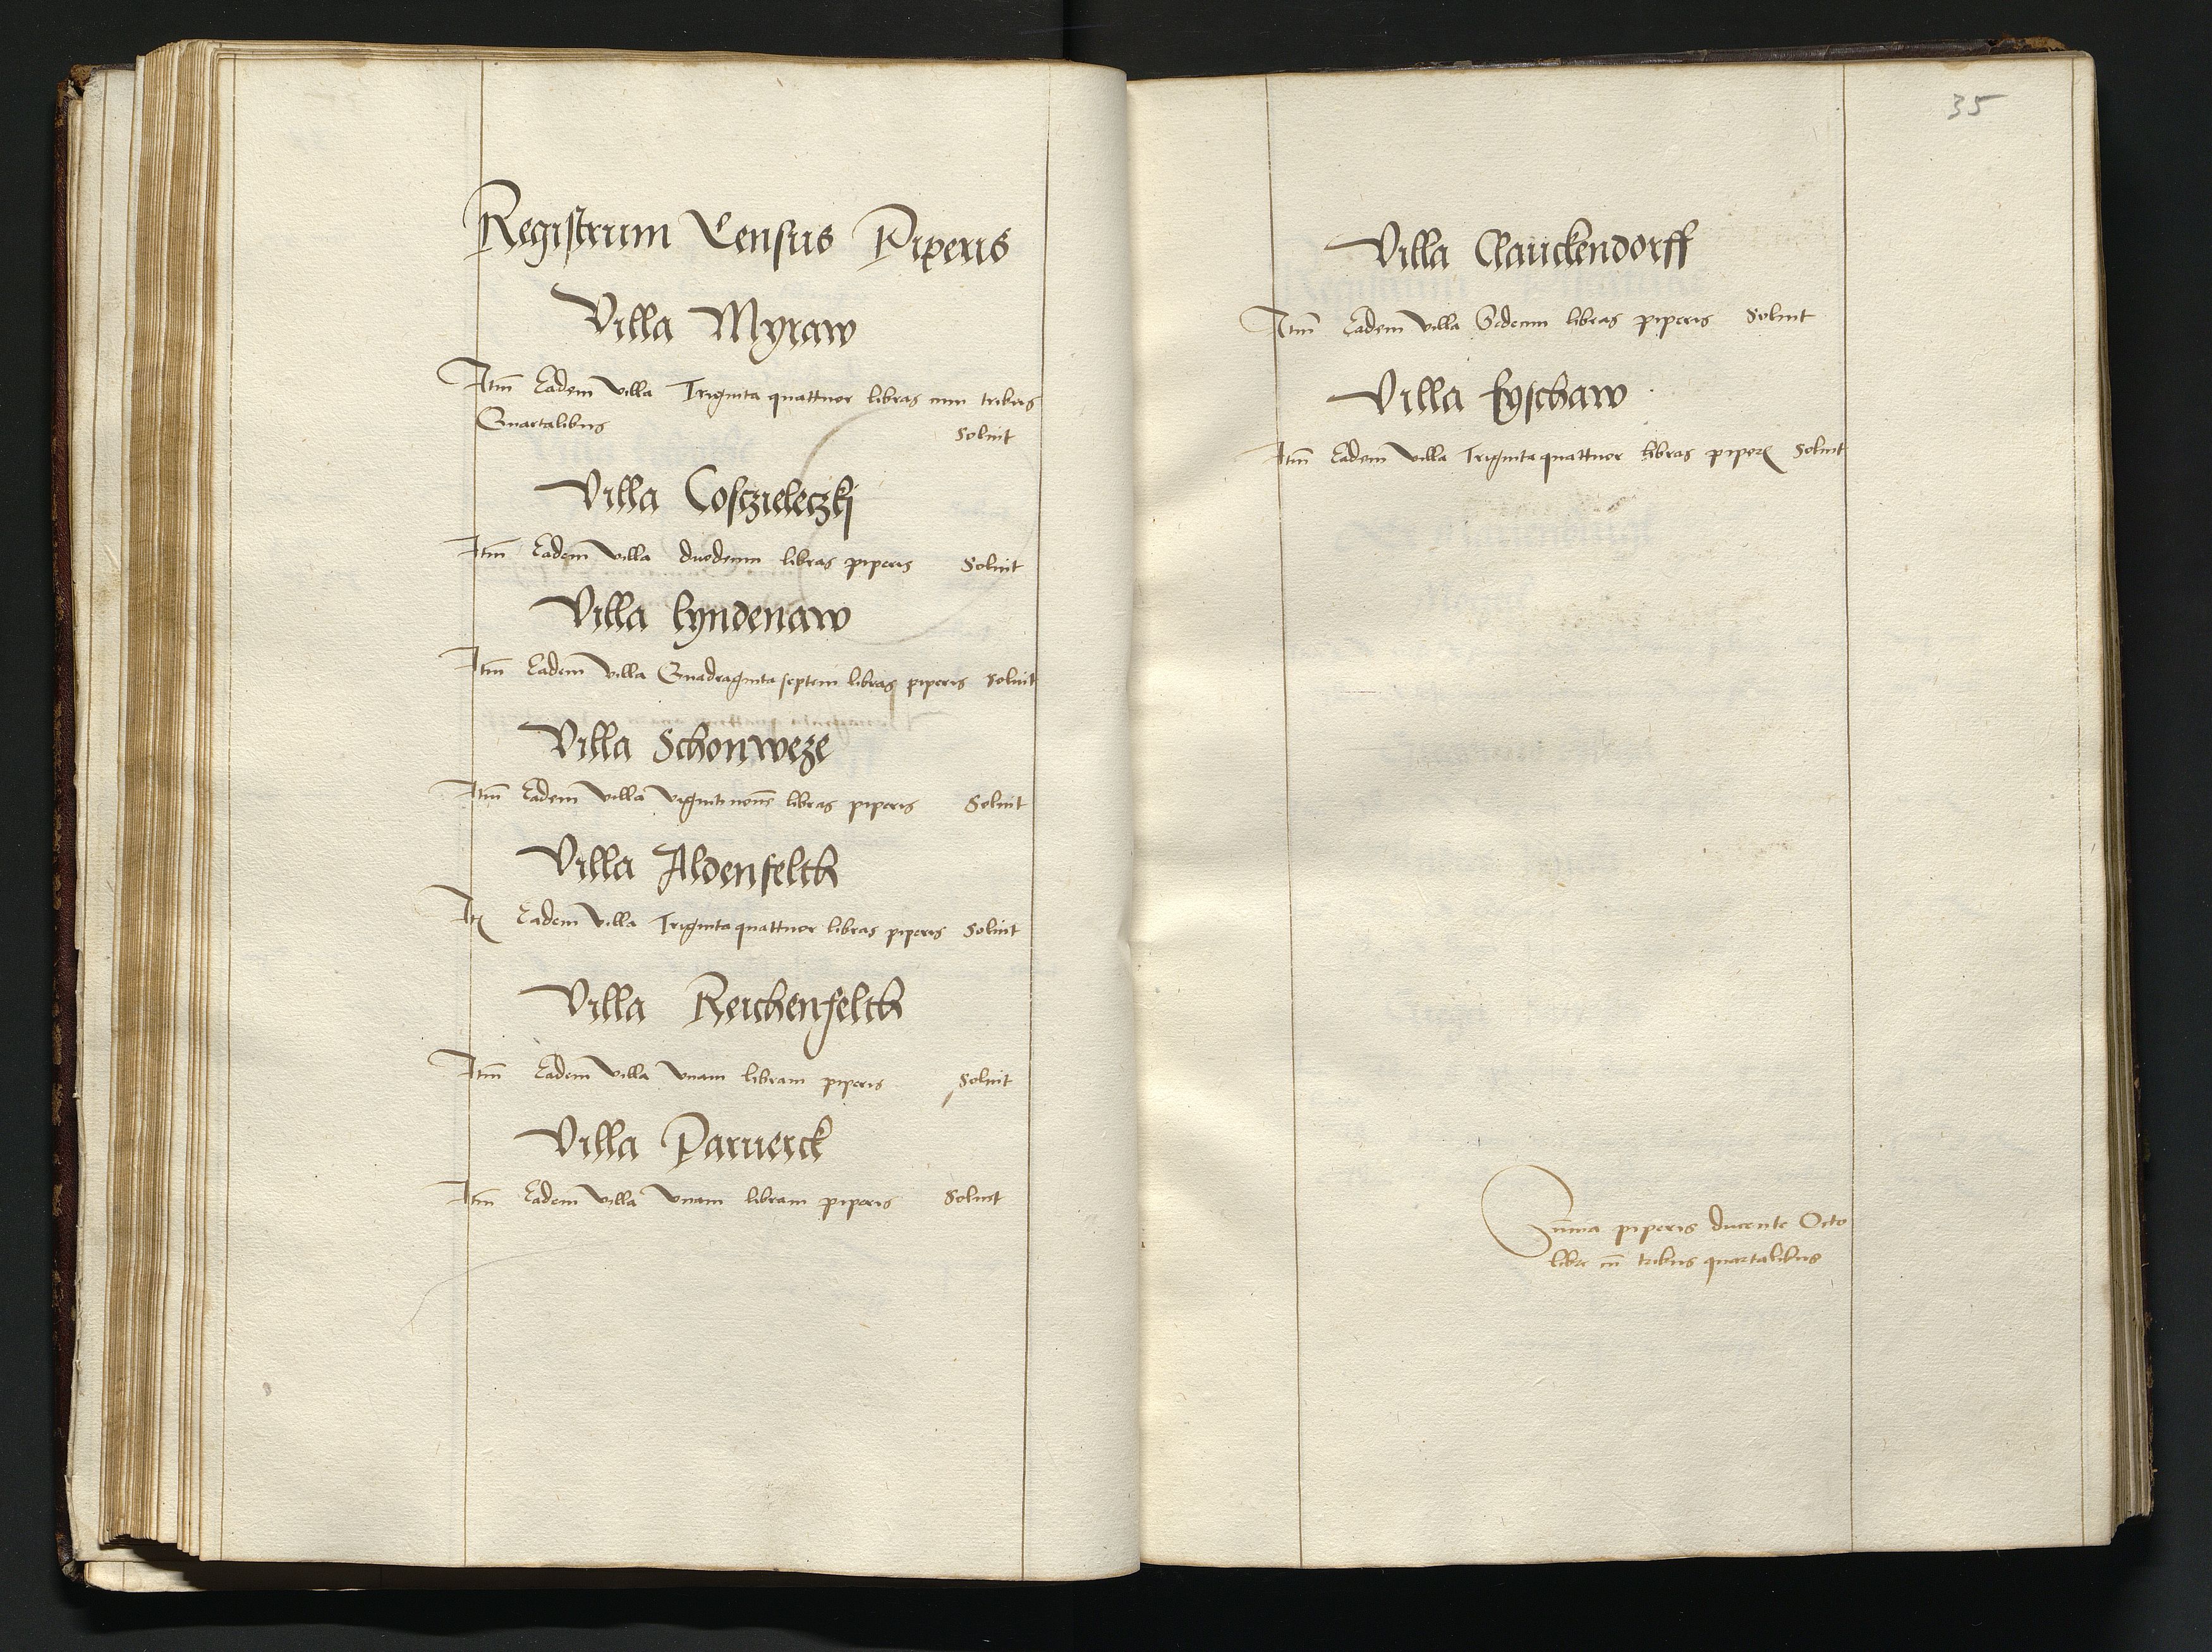 Registrum Census Piperis
Villa Myraw
Itm̄ Eadem villa Triginta quattuor libras cum tribus
Quartalibus Soluit
Villa Cosczieleczkj
Itm̄ Eadem villa duodecim libras piperis Soluit
Villa lyndenaw
Itm̄ Eadem villa Quadraginta septem libras piperis Soluit
Villa Schonweze
Itm̄ Eadem villa viginti nouē libras piperis Soluit
Villa Aldenfelth
It Eadem villa Triginta quattuor libras piperis Soluit
Villa Reichenfelth
Itm̄ Eadem villa vnam libram piperis Soluit
Villa Paruerck
Itm̄ Eadem villa vnam libram piperis Soluit
35
Villa Clauckendorff
Itm̄ Eadem villa Sedecim libras piperis Soluit
Villa fyschaw
Itm̄ Eadem villa Triginta quattuor libras piper Soluit
Sūma piperis ducente Octo
libre cū tribus quartalibus